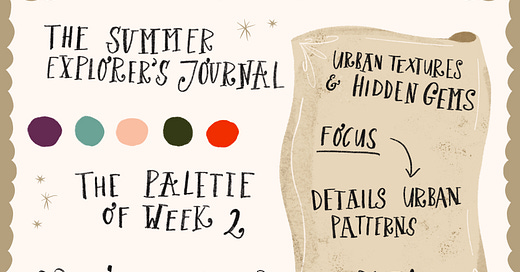 THE SUMMER
EXPLORER'S JOURNAL
THE PALETTE
OF WEEK 2
URBAN TEXTURES
& HIDDEN GEMS
FOCUS
DETAILS URBAN
PATTERNS